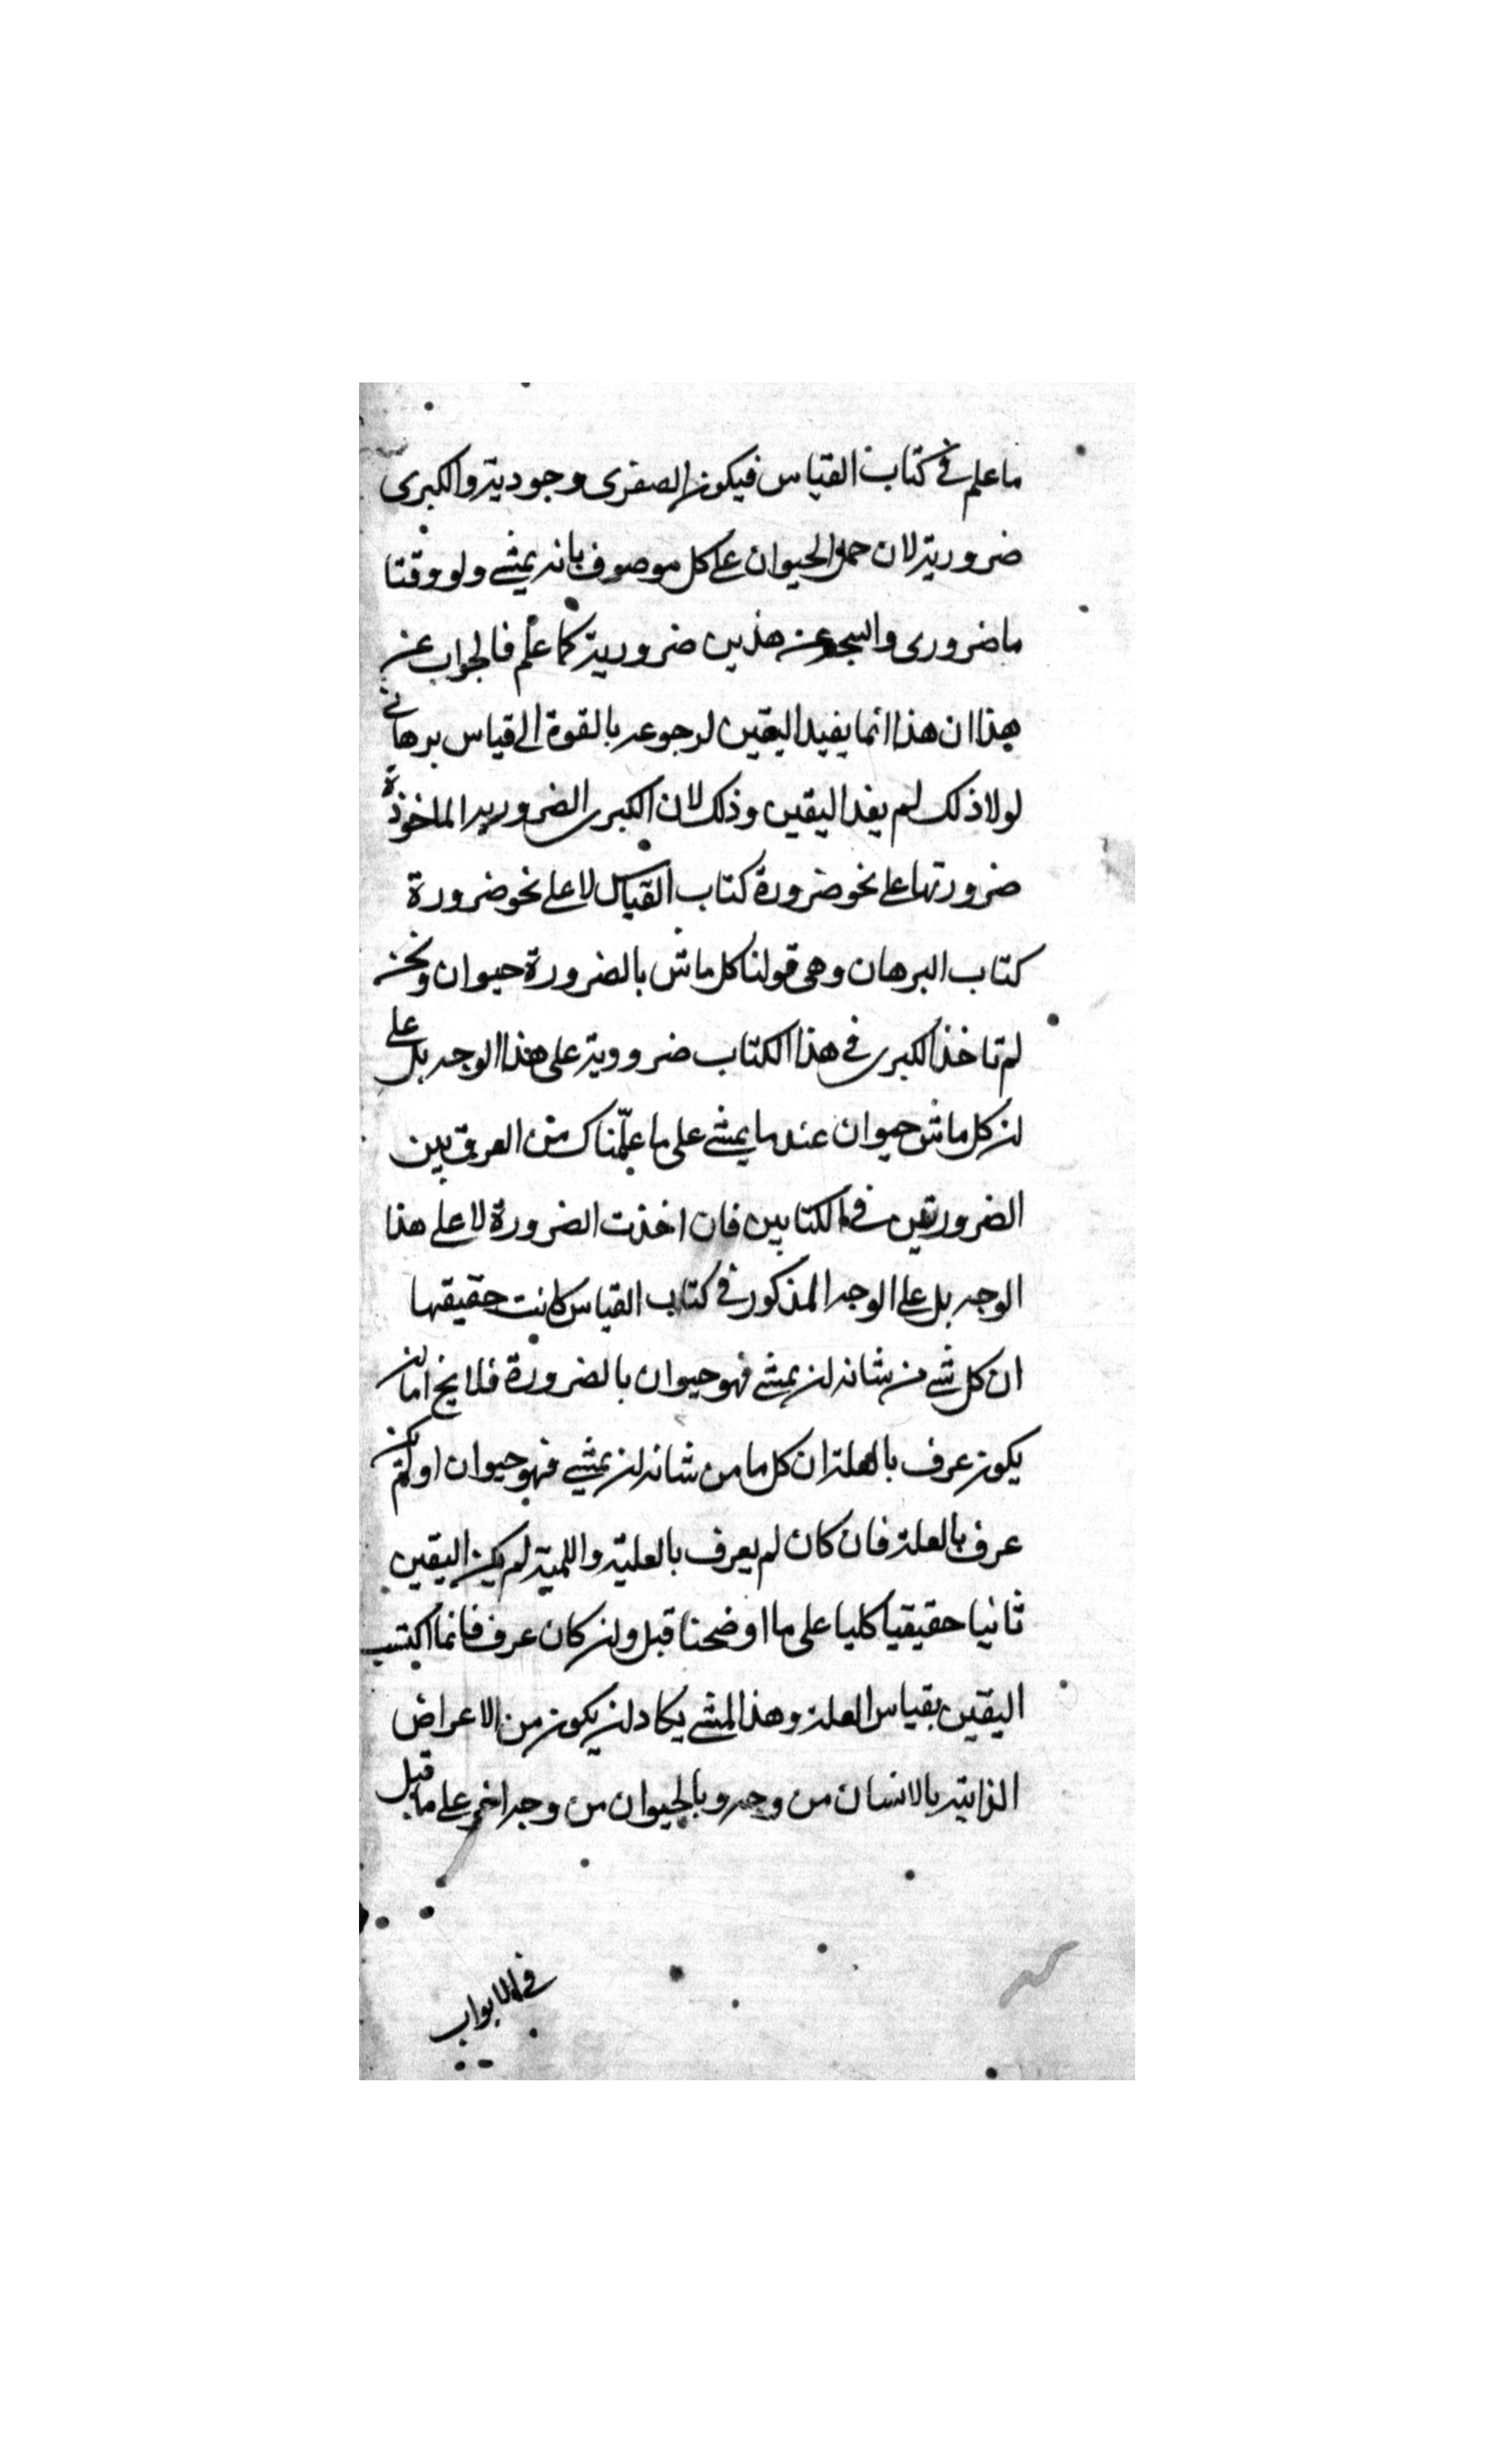 ما علم في كتاب القياس فيكون الصغرى وجودية والكبرى
ضرورية لان حمل الحيوان على كل موصوف بانه يمشى ولو وقتا
ما ضرورى والنتيجة عن هذين ضرورية كما علم فالجواب عن
هذا ان هذا انما يفيد اليقين لرجوعه بالقوة الى قياس برهانى
لولا ذلك لم يفد اليقين وذلك لان الكبرى الضرورية الماخوذة
ضرورتها على نحو ضرورة كتاب القياس لا على نحو ضرورة
كتاب البرهان وهى قولنا كل ماش بالضرورة حيوان ونحن
لم ناخذ الكبرى في هذا الكتاب ضرورية على هذا الوجه بل على
ان كل ماش حيوان عند ما يمشى على ما علّمناك من الفرق بين
الضرورتين في الكتابين فان اخذت الضرورة لا على هذا
الوجه بل على الوجه المذكور في كتاب القياس كانت حقيقتها
ان كل شى من شانه ان يمشى فهو حيوان بالضرورة فلا يخ اما ان
يكون عرف بالعلة ان كل ما من شانه ان يمشى فهو حيوان او لم يكن
عرف بالعلة فان كان لم يعرف بالعلية واللمية لم يكن اليقين
ثانيا حقيقيا كليا على ما اوضحنا قبل وان كان عرف فانما اكتسب
اليقين بقياس العلة وهذا المشى يكاد ان يكون من الاعراض
الذاتية بالانسان من وجه وبالحيوان من وجه اخر على ما قيل
في الابواب